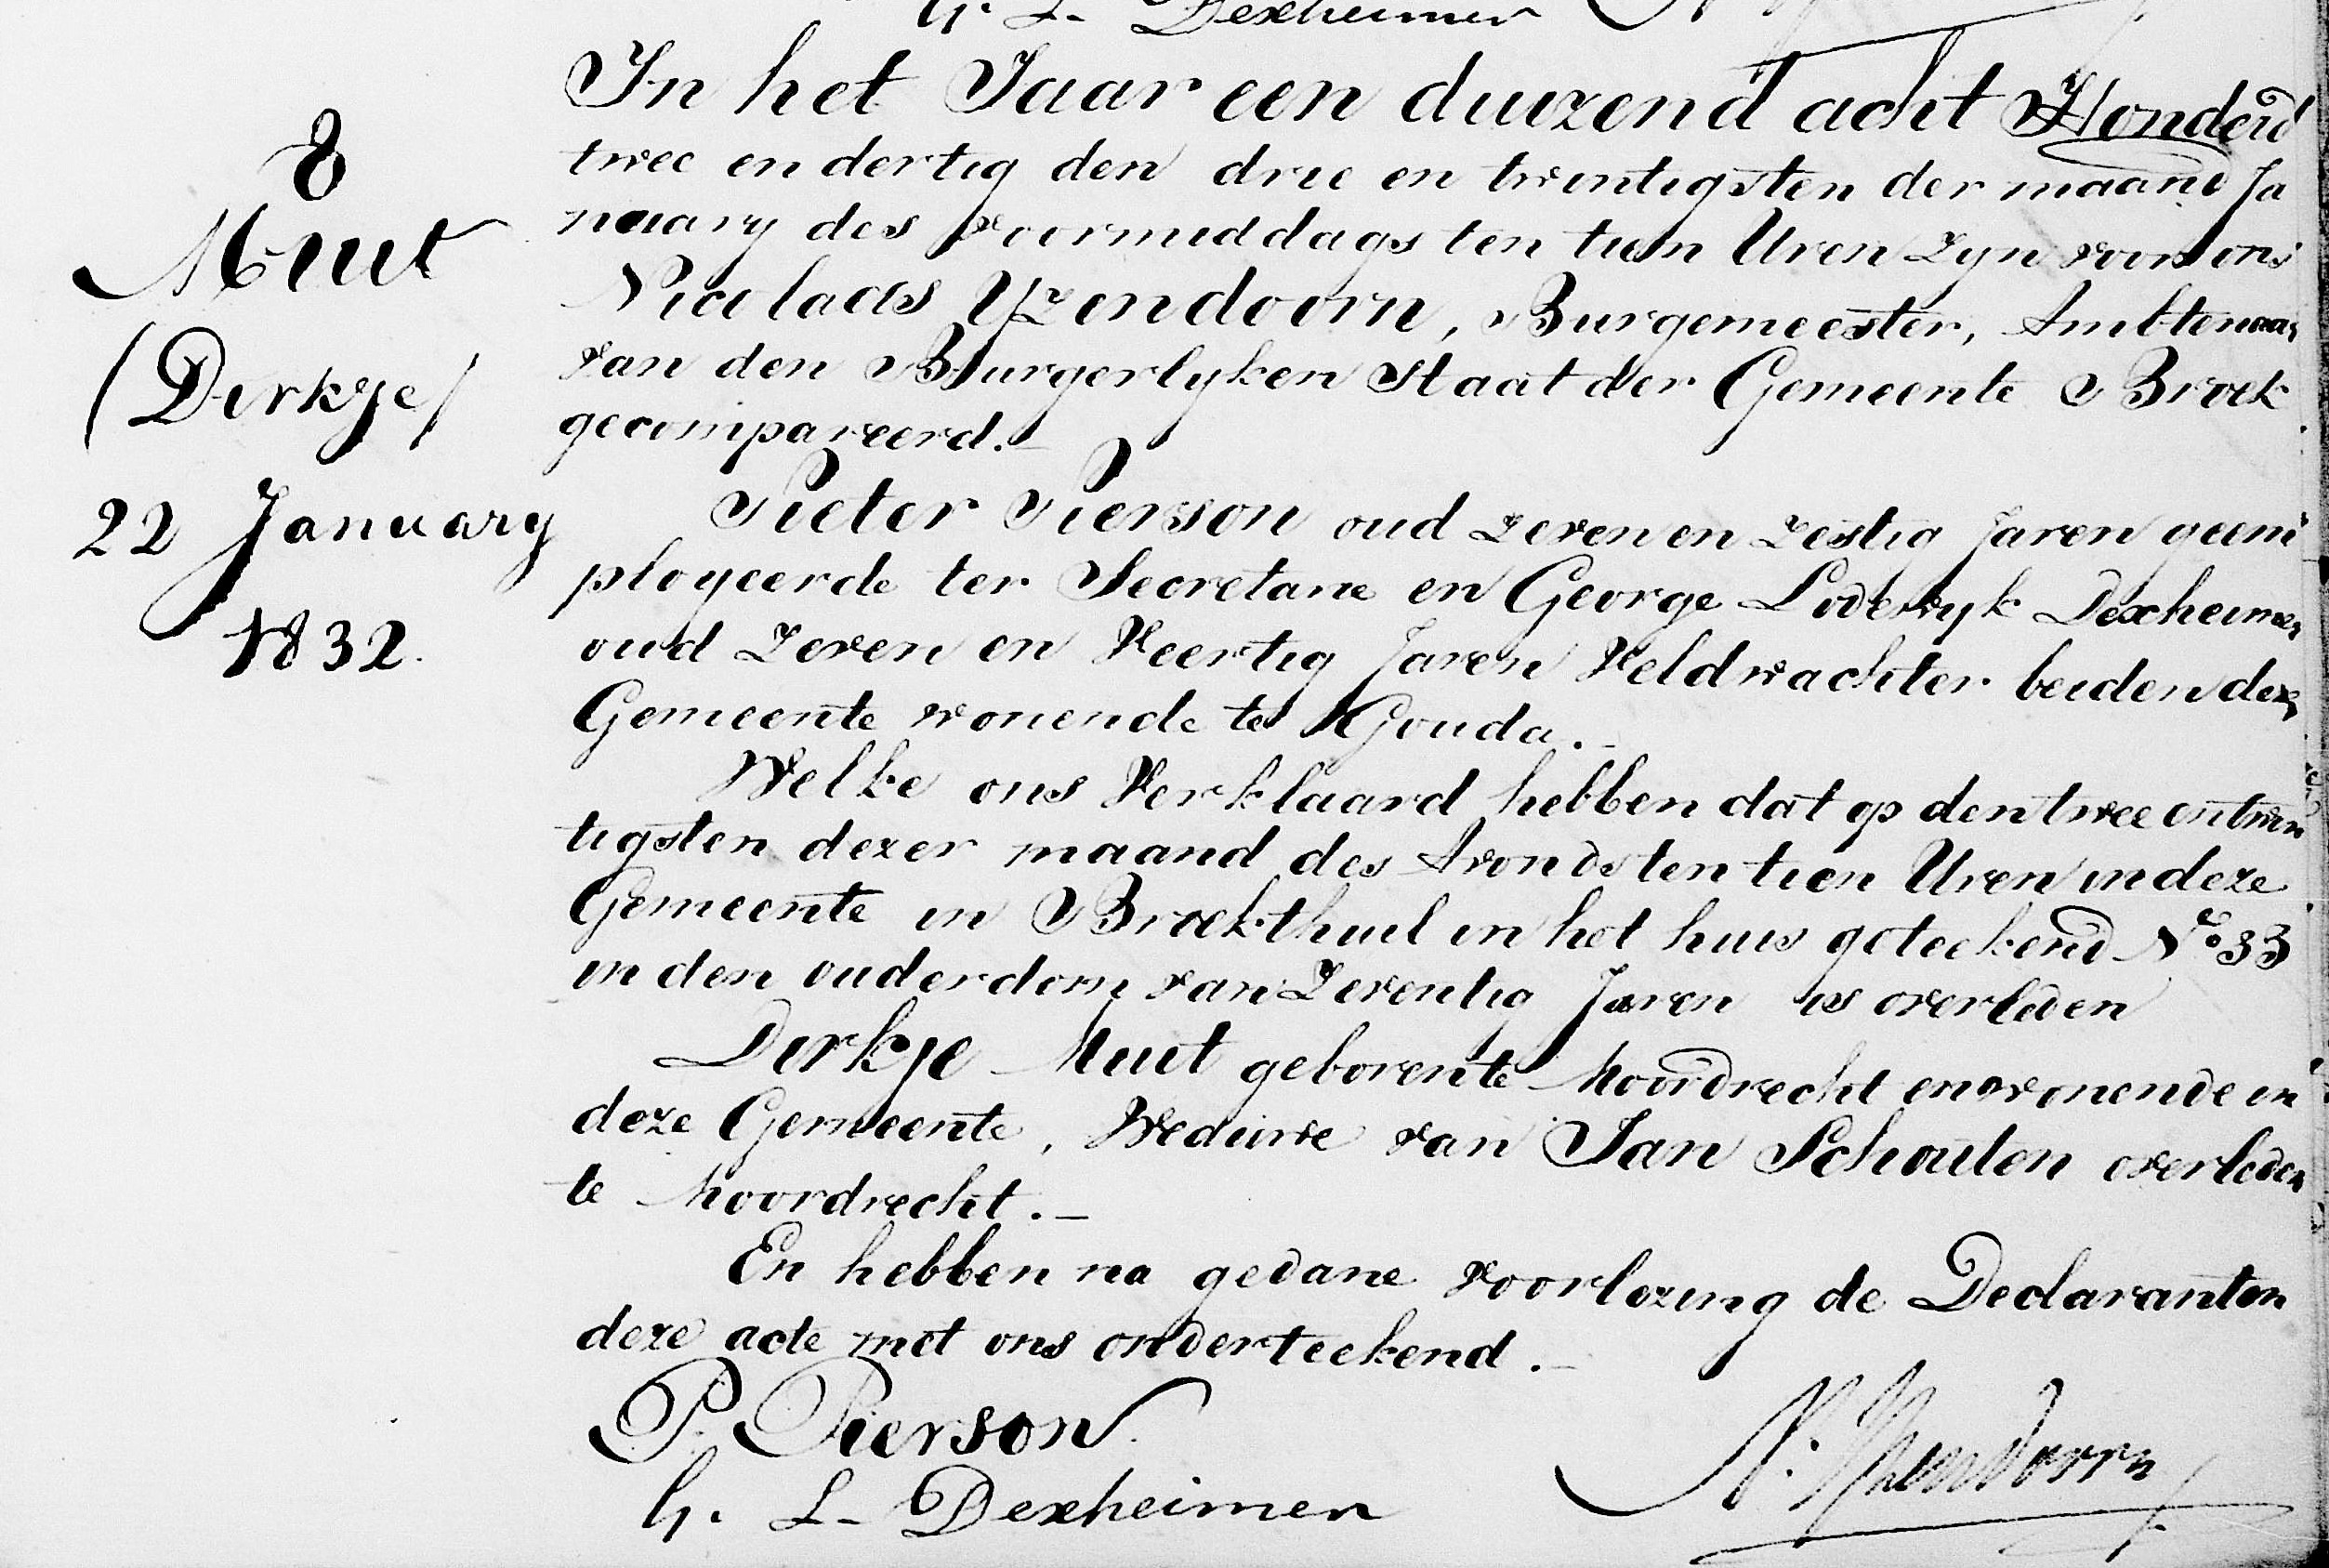 G. L. Dexheimer
8
Muit
(Dirkje)
22 January
1832.
In het Jaar een duizend acht Honderd
twee en dertig den drie en twintigsten der maand Ja
nuary des voormiddags ten tien Uren zyn voor ons
Nicolaas Yzendoorn, Burgemeester, Ambtenaar
van den Burgerlyken Staat der Gemeente Broek
gecompareerd.
Pieter Pierson oud zeven en zestig Jaren geem
ployeerde ter Secretarie en George Lodewyk Dexheimer
oud zeven en Veertig Jaren Veldwachter beiden dezer
Gemeente wonende te Gouda.
Welke ons Verklaard hebben dat op den twee en twin
tigsten dezer maand des Avonds ten tien Uren in deze
Gemeente in Broek thuil in het huis geteekend No. 33
in den ouderdom van Zeventig Jaren is overleden
Dirkje Muit geboren te Moordrecht en wonende in
deze Gemeente, Weduwe van Jan Schouten overleden
te Moordrecht.
En hebben na gedane voorlezing de Declaranten
deze acte met ons onderteekend.
P. Pierson
G. L. Dexheimer
N. Yzendoorn